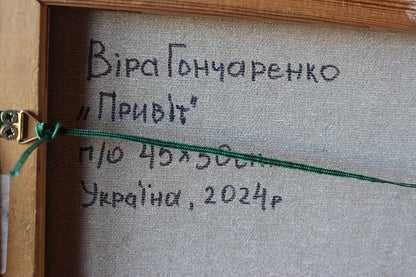 Віра Гончаренко
„Привіт"
п/о 45×50см
Україна, 2024р